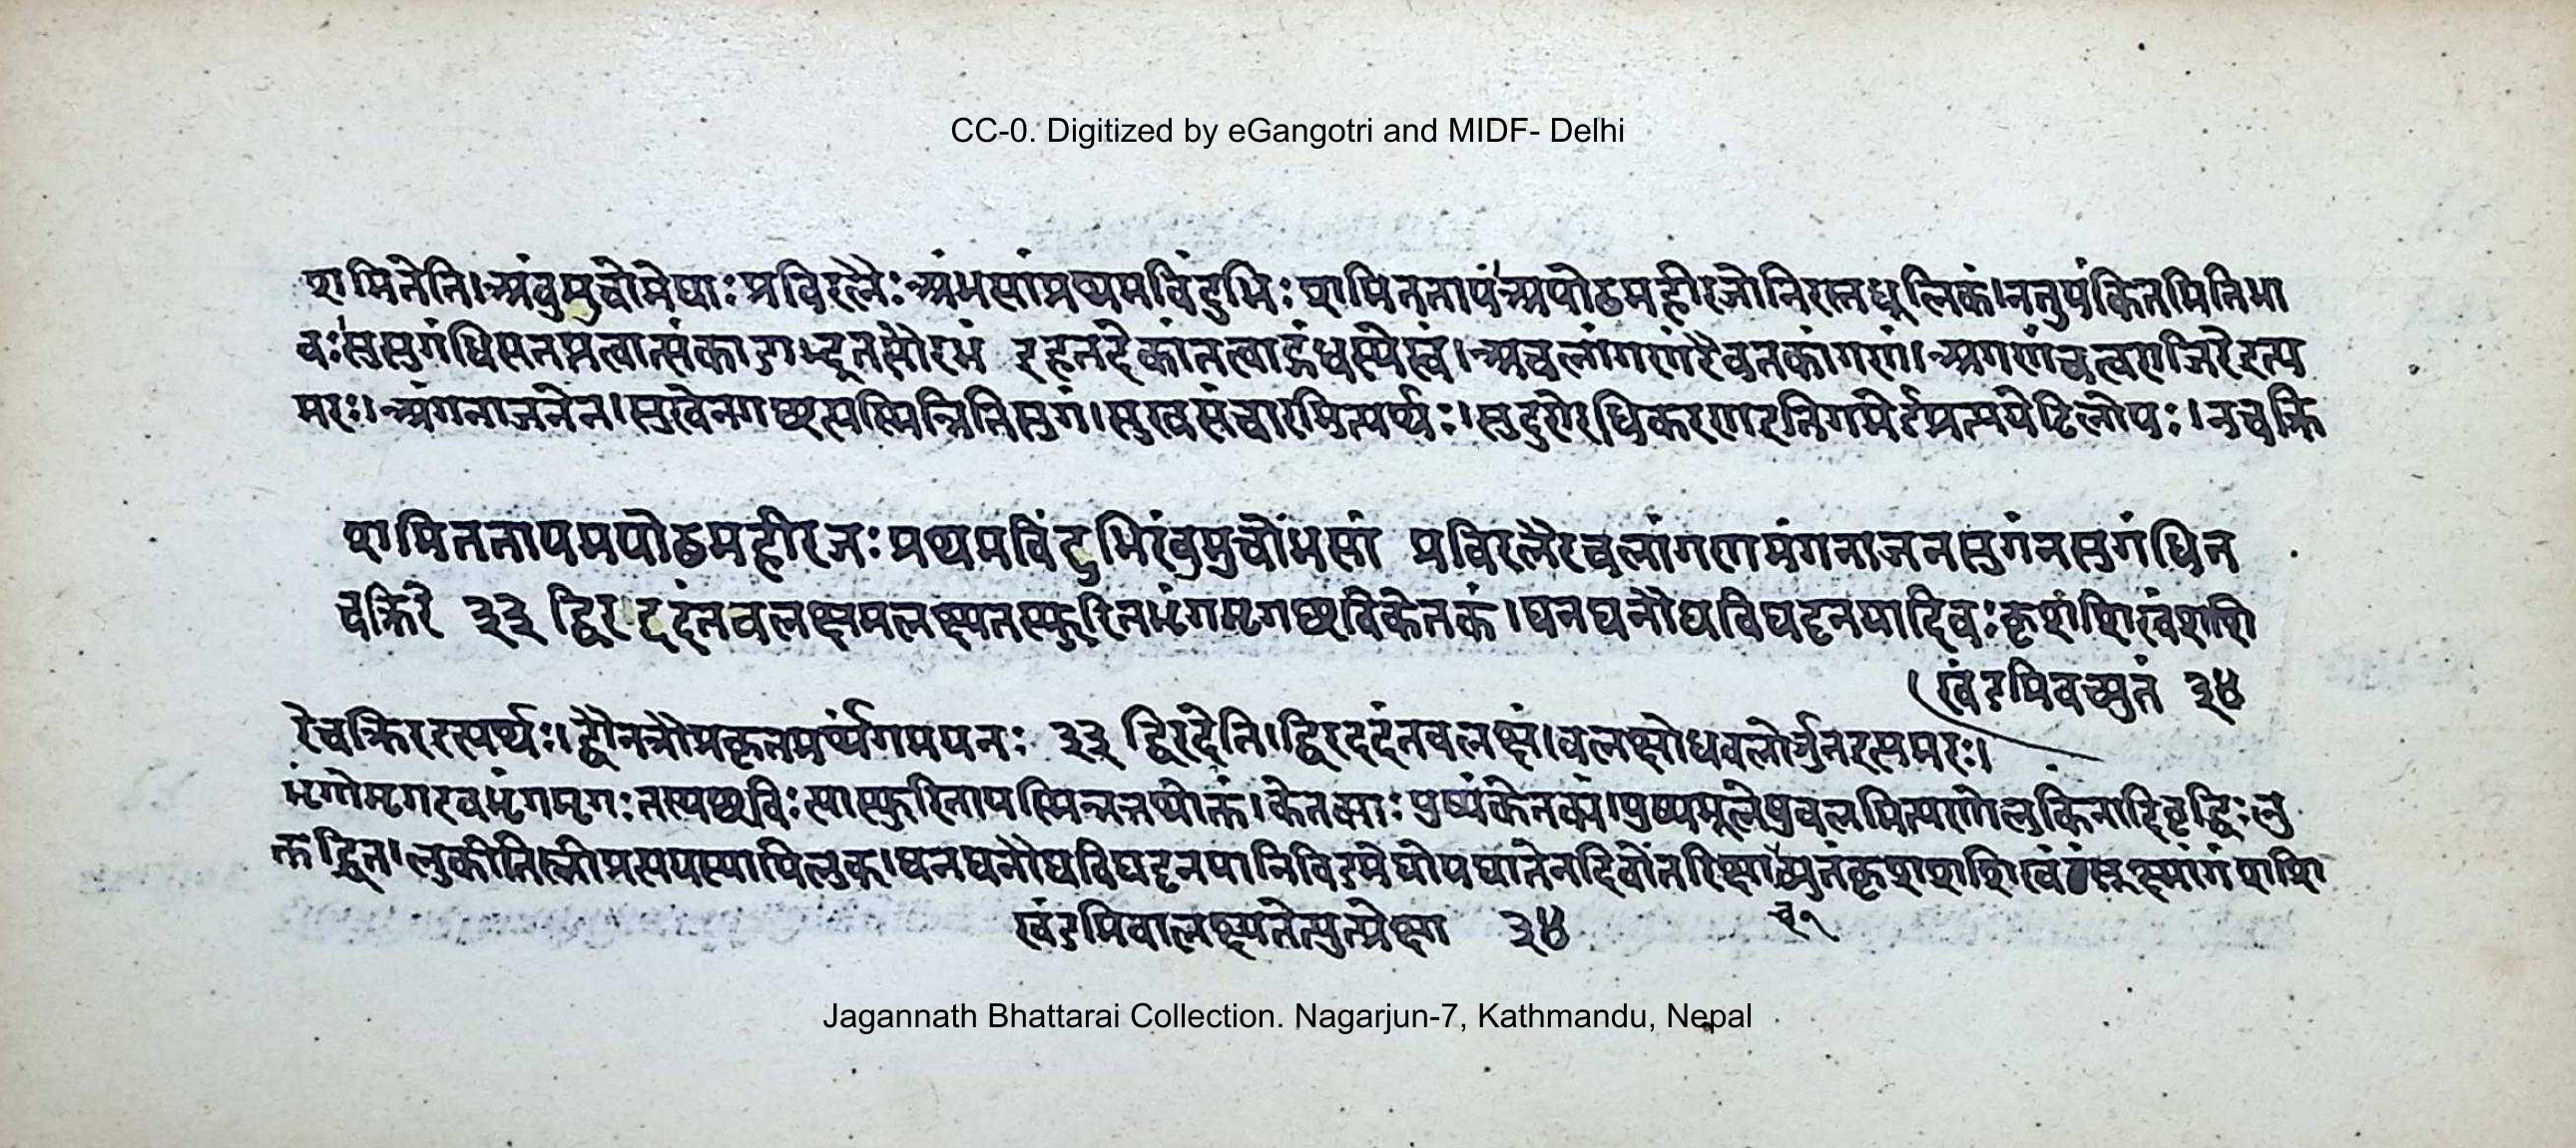 CC-0. Digitized by eGangotri and MIDF- Delhi
शमितेति। अंबुमुचोमेघाः प्रविरलैः अंभसांप्रथमबिंदुभिः शमिततापं अपोढमहीरजोनिरस्तधूलिकं। नतुपंकितमितिभा
वः सुसुगंधिसन्नप्रत्वात्संकाडाद्भूतसौरभं इहतदेकांतत्वाद्गंधस्येत्वं। अचलांगणंरैवतकांगणं। अगणंचत्वराजिरेइत्य
मरः। अंगनाजनेन। सुखेनगछत्यस्मिन्नितिसुगं। सुखसंचारमित्यर्थः। सुदुरोरधिकरणइतिगमेर्डप्रत्ययेटिलोपः। नचक्रि
शमिततापमपोढमहीरजः प्रथमबिंदुभिरंबुमुचोंभसां प्रविरलैरचलांगणमंगनाजनसुगंनसुगंधिन
चक्रिरे ३३ द्विरददंतवलक्षमलक्ष्यतस्फुरितभृंगमृगछविकेतकं। घनघनौघविघट्टनयादिवः कृशशिखंशशि
खंडमिवच्युतं ३४
रेचक्रिरइत्यर्थः। द्वौनञौप्रकृतमर्थंगमयतः ३३ द्विरदेति। द्विरददंतवलक्षं। वलक्षोधवलोर्जुनइत्यमरः।
भृंगोमृगइवभृंगमृगः तस्यछविः सास्फुरितायस्मिन्तत्तथोक्तं। केतक्याः पुष्पंकेतकं। पुष्पमूलेषुबहुलमित्यणोलुकिनादिवृद्धिः लु
क्तद्धित। लुकीतिस्त्रीप्रत्ययस्यापिलुक्। घनघनौघविघट्टनयानिविडमेघोपघातेनदिवोंतरिक्षाच्च्युतंकृशशशिखंसूक्ष्मांगंशशि
खंडमिवालक्ष्यतेत्युत्प्रेक्षा ३४
Jagannath Bhattarai Collection. Nagarjun-7, Kathmandu, Nepal